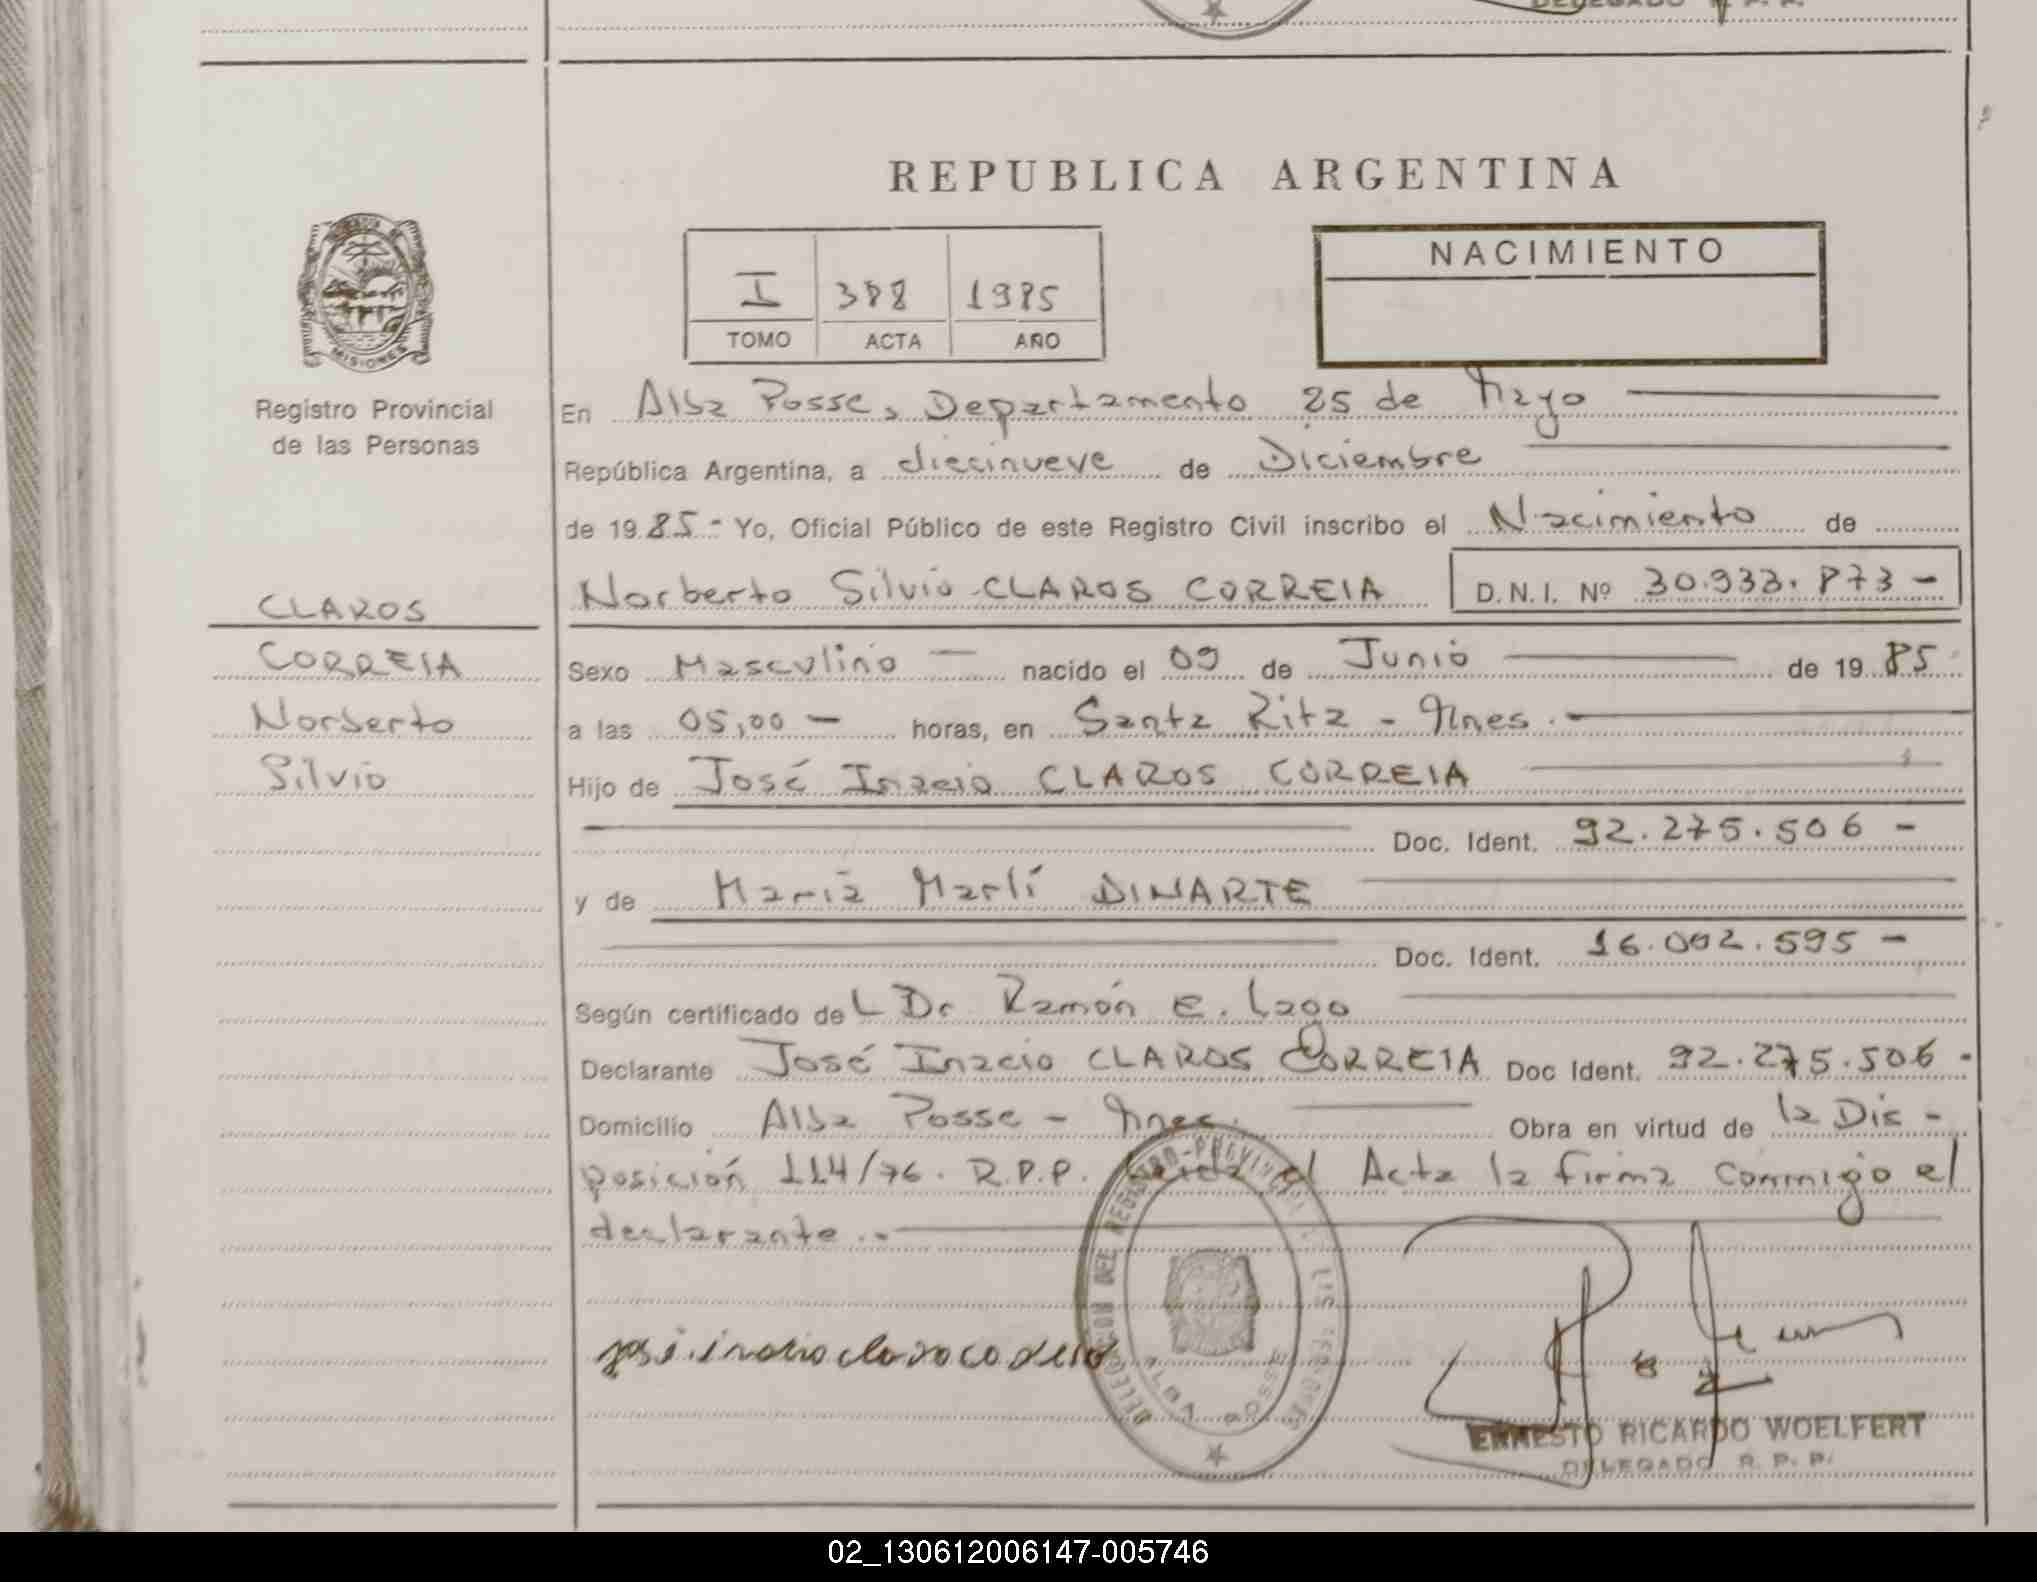 DELEGADO R. P. P.
REPUBLICA ARGENTINA
NACIMIENTO
I 388 1985
TOMO ACTA AÑO
MISIONES
Registro Provincial
de las Personas
En Alba Posse, Departamento 25 de Mayo
República Argentina, a diecinueve de Diciembre
de 1985.- Yo, Oficial Público de este Registro Civil inscribo el Nacimiento de
Norberto Silvio CLAROS CORREIA D.N.I. Nº 30.933.873-
CLAROS
CORREIA
Norberto
Silvio
Sexo Masculino — nacido el 09 de Junio de 1985
a las 05,00 — horas, en Santa Rita - Mnes.
Hijo de José Inacio CLAROS CORREIA
Doc. Ident. 92.275.506 -
y de Maria Marlí DINARTE
Doc. Ident. 16.002.595 -
Según certificado del Dr. Ramón E. Lago
Declarante José Inacio CLAROS CORREIA Doc Ident. 92.275.506 -
Domicilio Alba Posse - Mnes. Obra en virtud de la Dis-
posición 114/76. R.P.P. Leida el Acta la firma conmigo el
declarante.-
DELEGACION DEL REGISTRO PROVINCIAL DE LAS PERSONAS
ALBA POSSE
ERNESTO RICARDO WOELFERT
DELEGADO R. P. P.
02_130612006147-005746